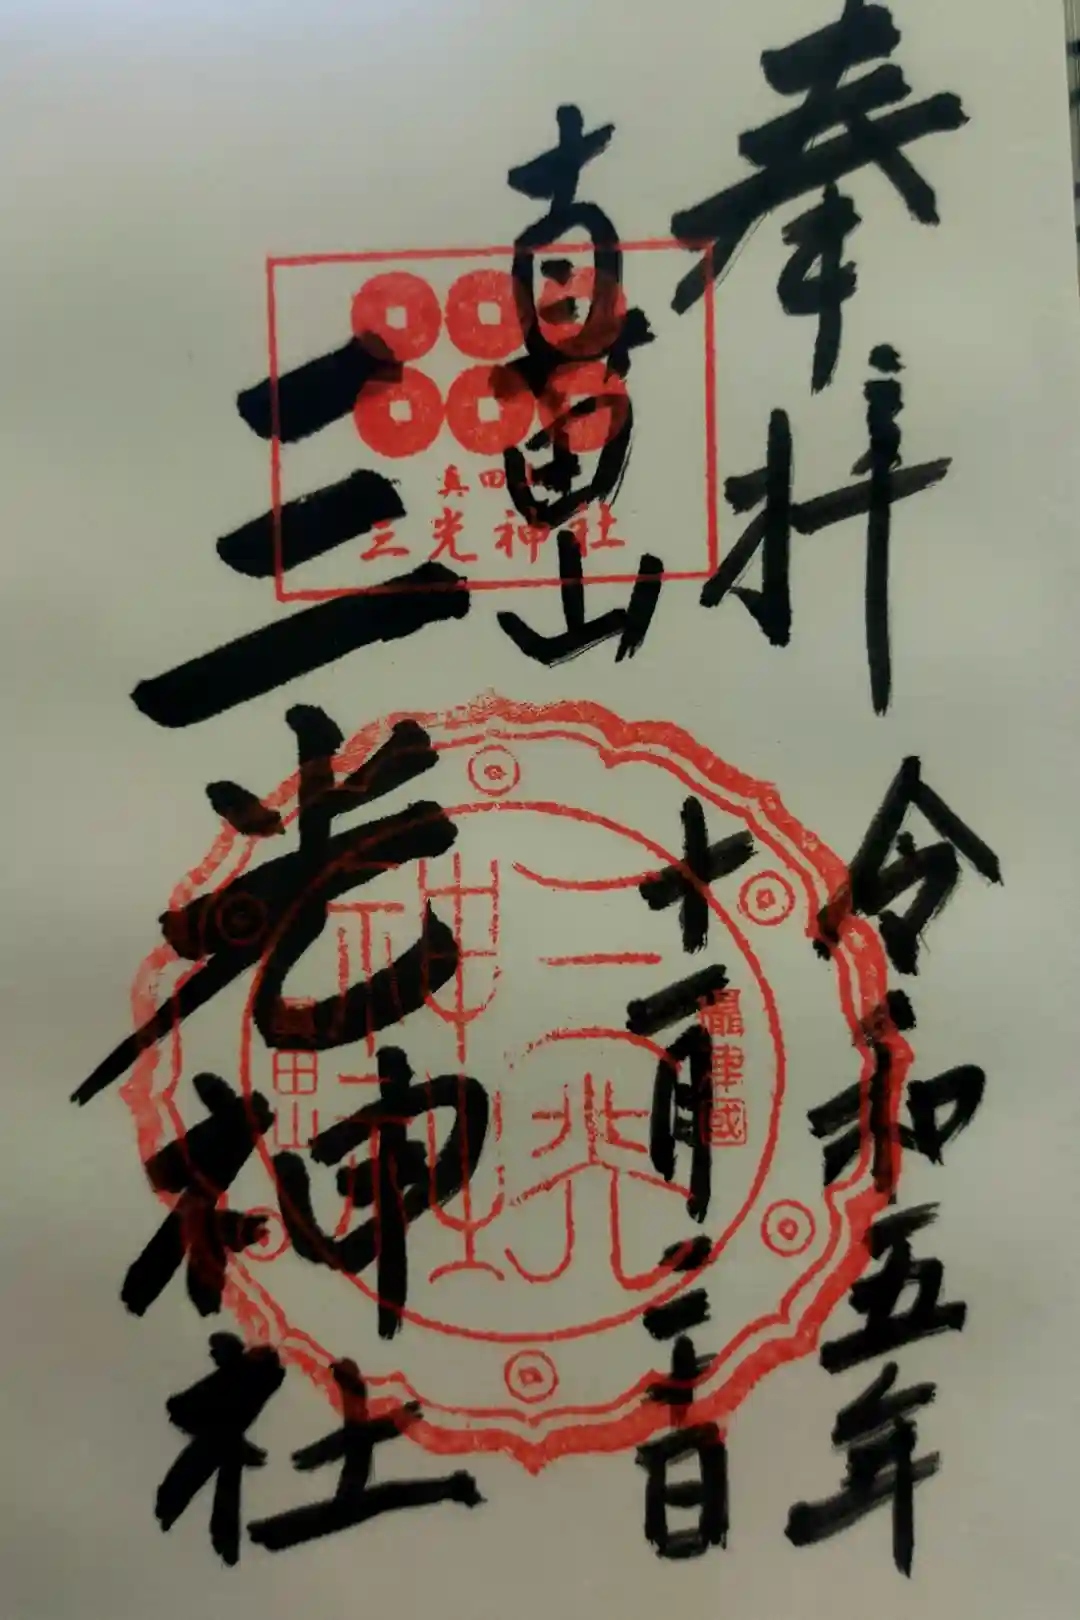 奉拝
令和五年
十一月二十一日
真田山
三光神社
真田山
三光神社
攝津國
三光
神社
眞田山